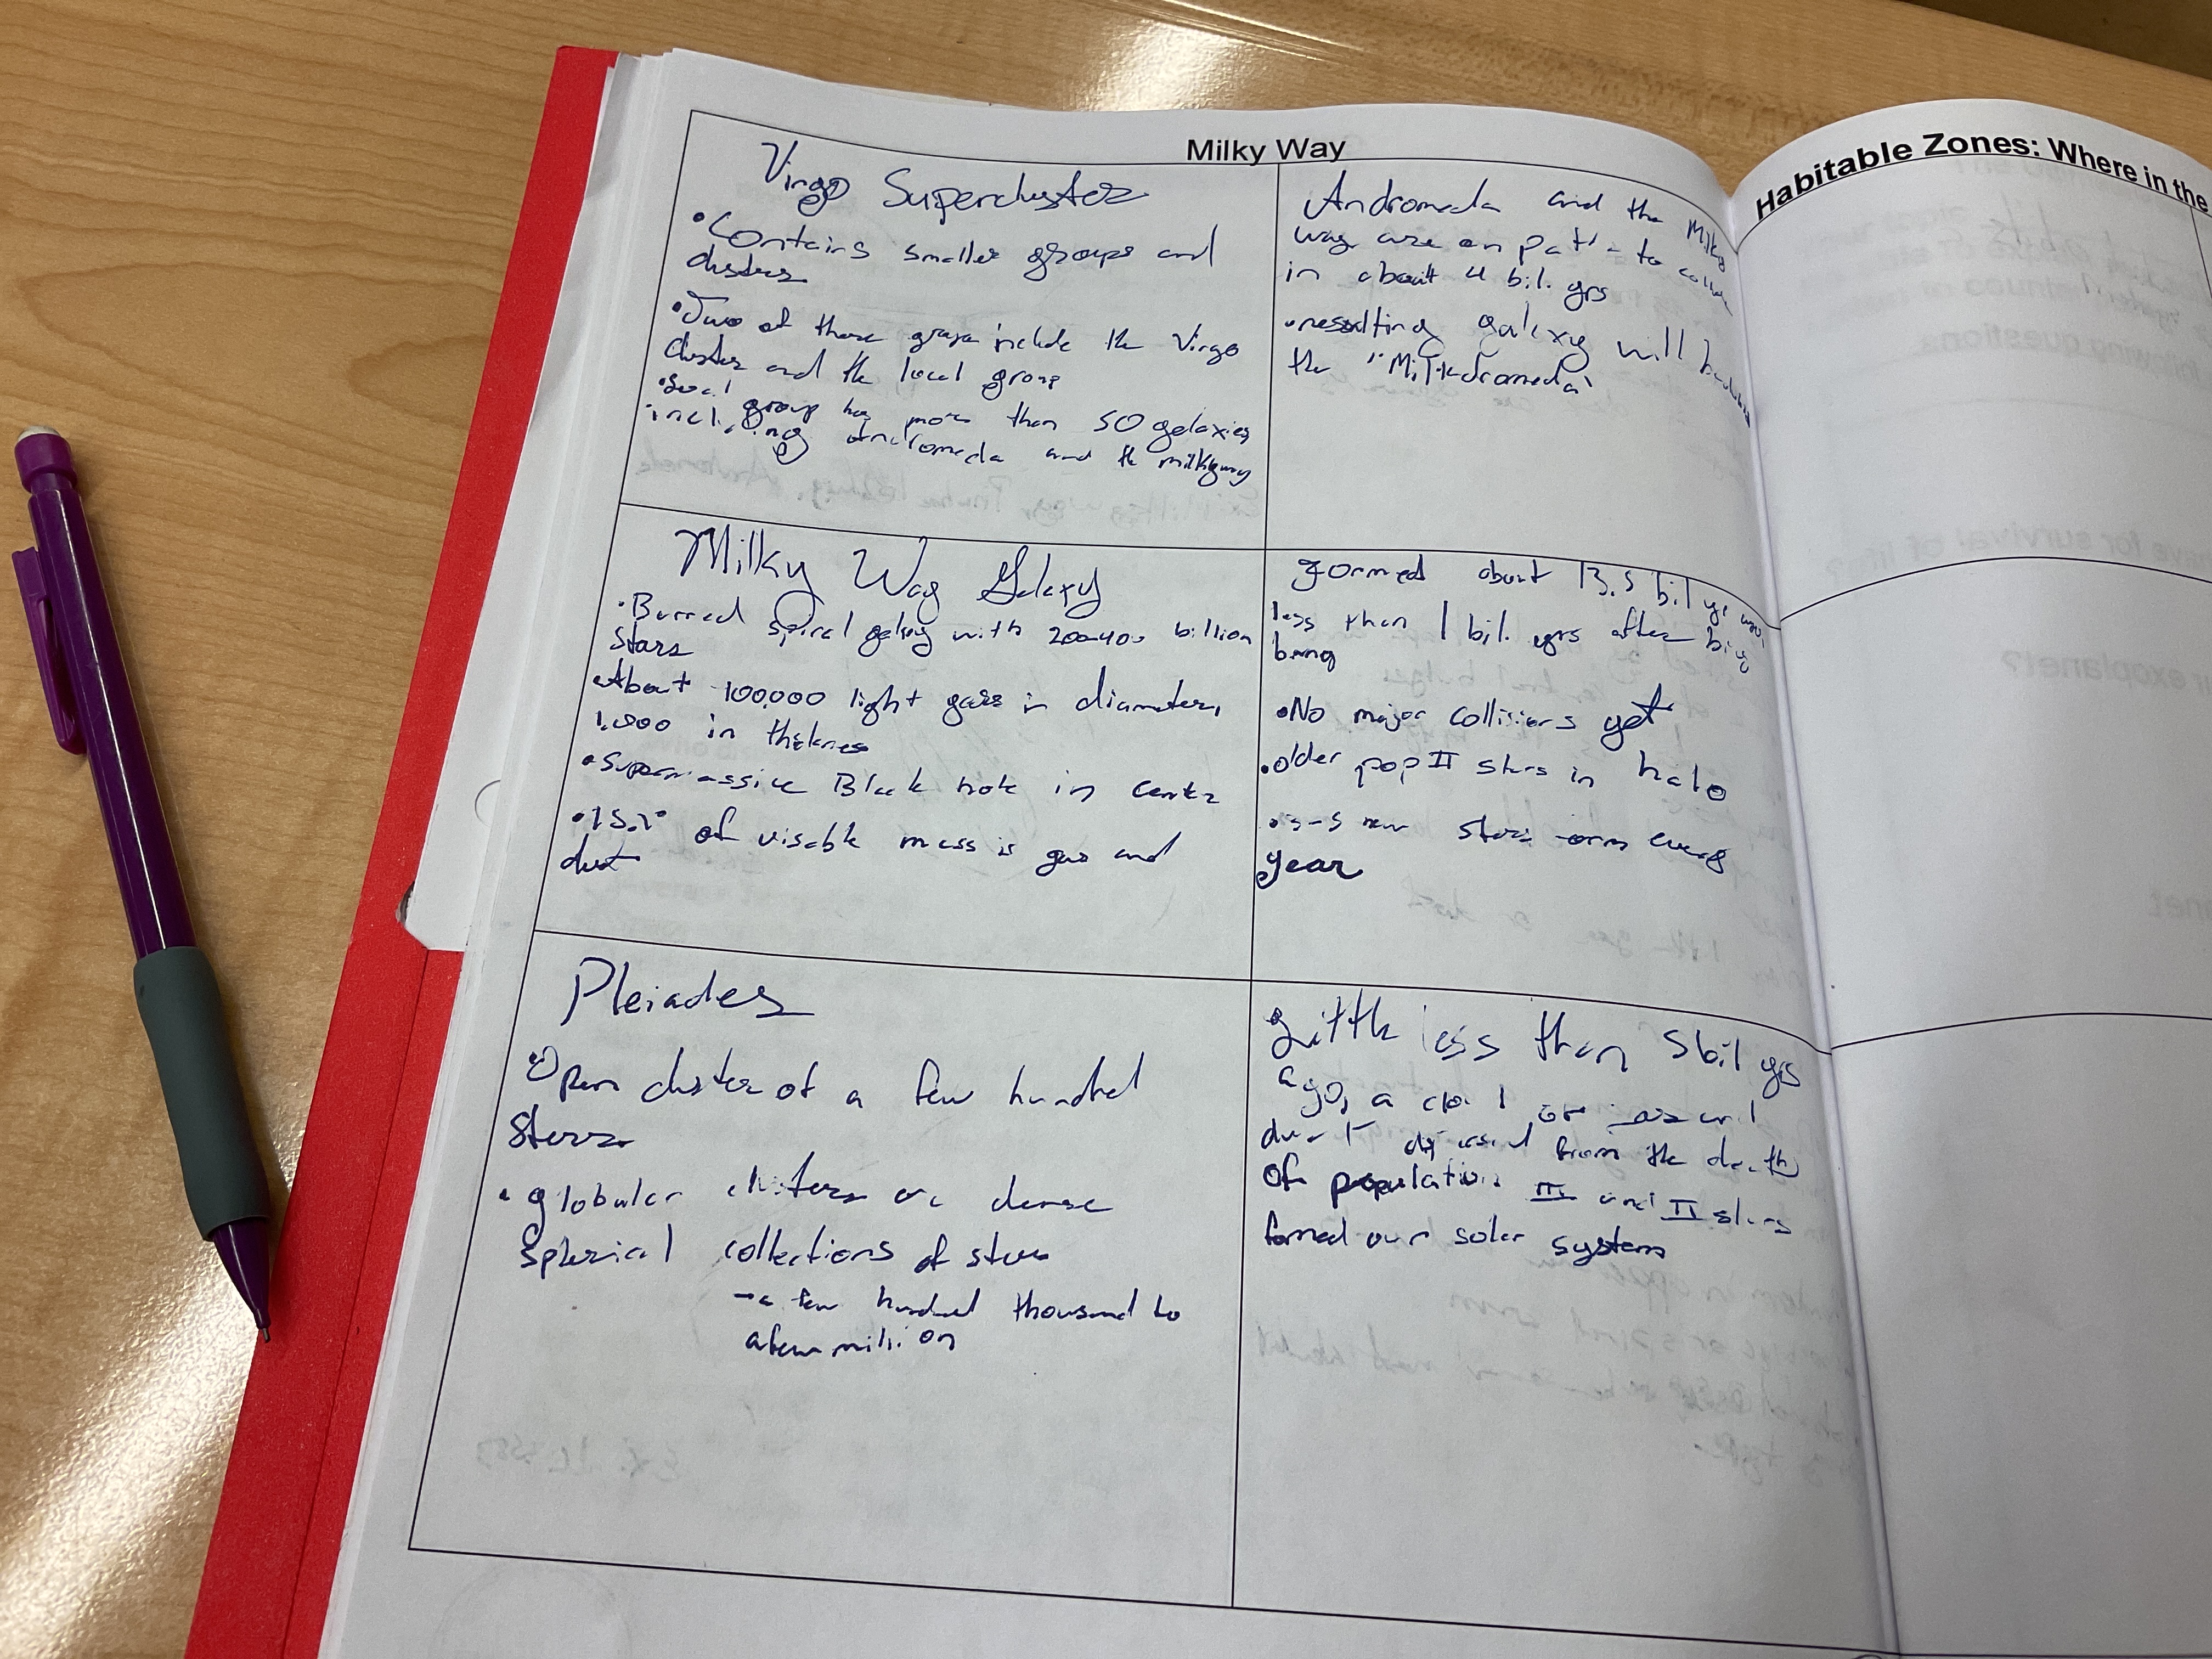 Milky Way
Virgo Supercluster
•Contains smaller groups and
clusters
•Two of those groups include the Virgo
cluster and the local group
•Local group has more than 50 galaxies
including andromeda and the milkyway
Andromeda and the Milky
way are on path to collide
in about 4 bil. yrs
•resulting galaxy will be
the "Milkdromeda"
Milky Way Galaxy
•Barred spiral galaxy with 200-400 billion
stars
•About 100,000 light years in diameter,
1,000 in thickness
•Supermassive Black hole in center
•15% of visable mass is gas and
dust
Formed about 13.5 bil yr ago,
less than 1 bil. yrs after big
bang
•No major collisions yet
•older pop II stars in halo
•3-5 new stars form every
year
Pleiades
•Open cluster of a few hundred
stars
•globular clusters are dense
spherical collections of stars
→a few hundred thousand to
a few million
Little less than 5bil yrs
ago, a cloud of gas and
dust dispersed from the death
of population III and II stars
formed our solar system
Habitable Zones: Where in the